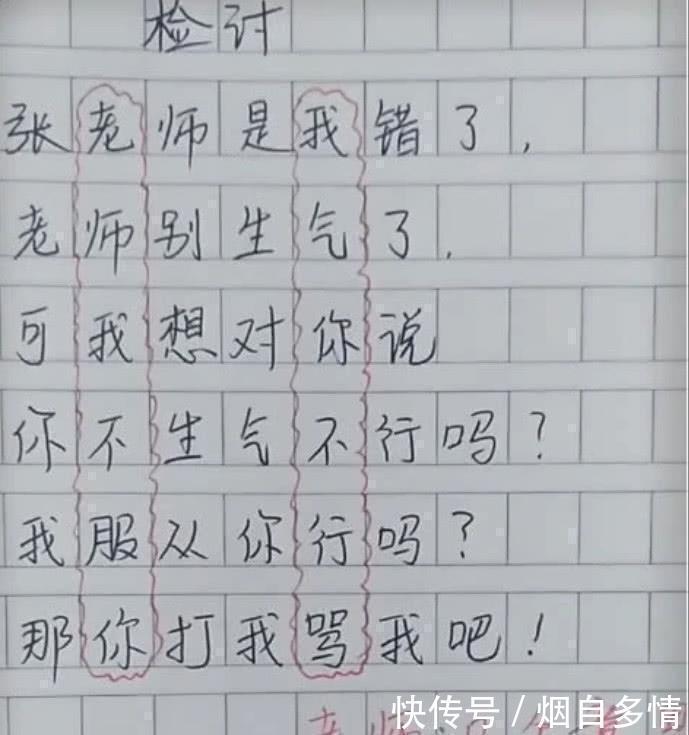 检讨
张老师是我错了,
老师别生气了.
可我想对你说
你不生气不行吗?
我服从你行吗?
那你打我骂我吧!
快传号/烟自多情